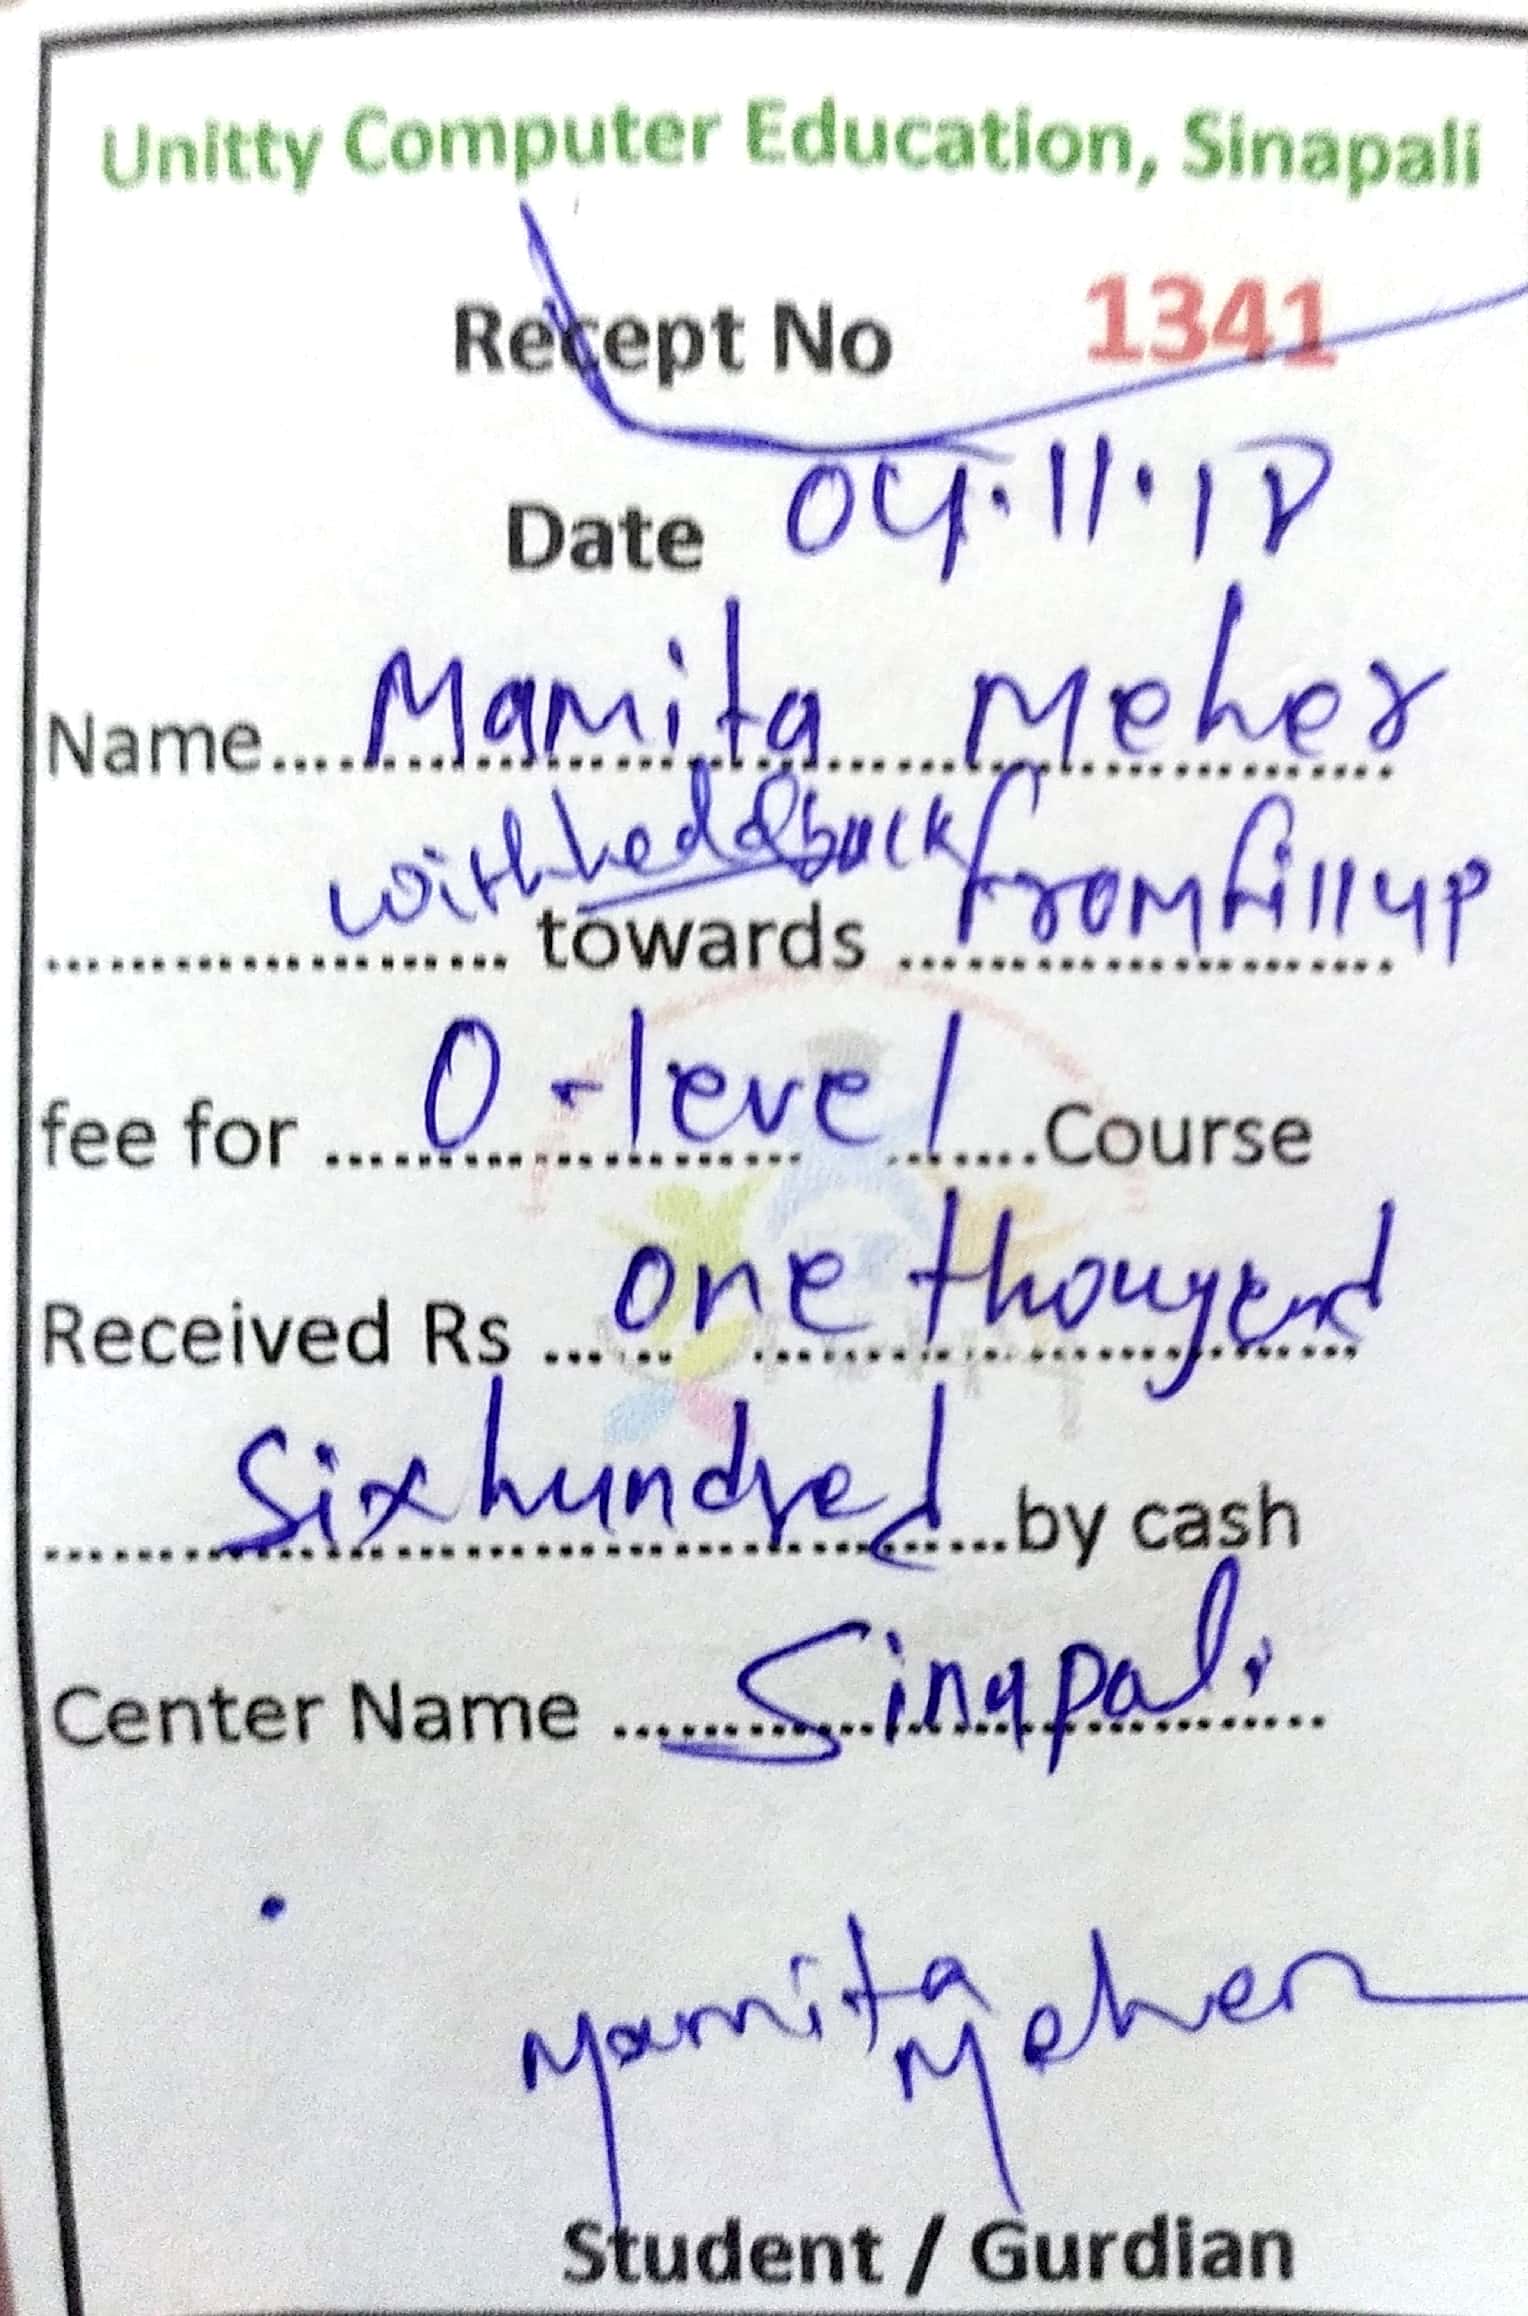 Unitty Computer Education, Sinapali
Recept No 1341
Date 04.11.18
Name.... Mamita Meher
with
.................... towards .................... from fillup
fee for .... O-level ....Course
Received Rs .... one thousand
.... Six hundred ....by cash
Center Name .... Sinapali
Mamita
Meher
Student / Gurdian